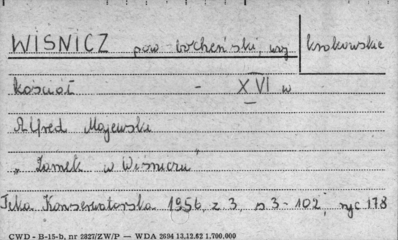 WIŚNICZ pow bocheński, woj krakowskie
kościół - XVI w
Alfred Majewski
„Zamek w Wiśniczu"
Teka Konserwatorska 1956, z 3, s 3-102, ryc 178
CWD - B-15-b, nr 2827/ZW/P — WDA 2694 13.12.82 1.700.000